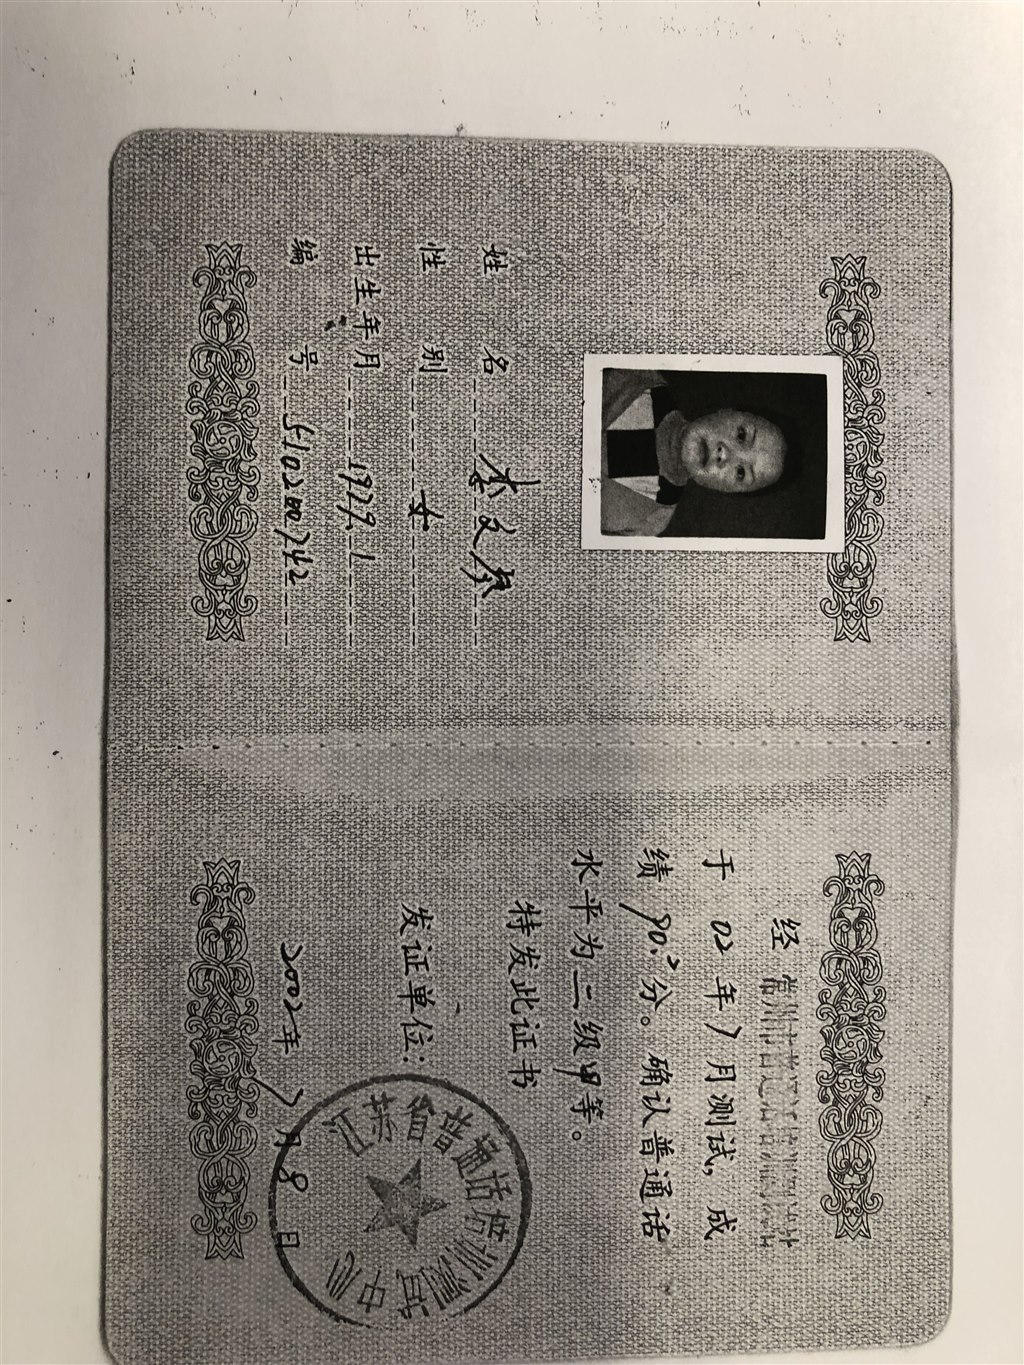 姓名 李文琴
性别 女
出生年月 1979.1
编号 510200742
经 常州市普通话培训测试站
于 02 年 7 月测试，成
绩 90.2 分。确认普通话
水平为 二 级 甲 等。
特发此证书
发证单位：
江苏省普通话培训测试中心
2002年 7月 8 日